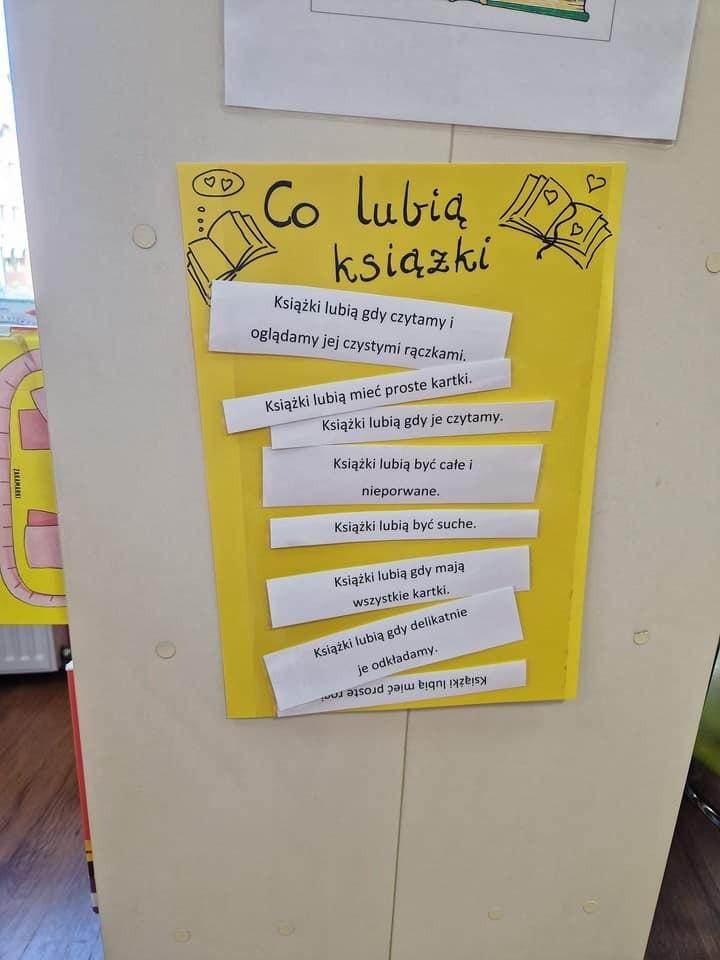 Co lubią
książki
Książki lubią gdy czytamy i
oglądamy jej czystymi rączkami.
Książki lubią mieć proste kartki.
Książki lubią gdy je czytamy.
Książki lubią być całe i
nieporwane.
Książki lubią być suche.
Książki lubią gdy mają
wszystkie kartki.
Książki lubią gdy delikatnie
je odkładamy.
Książki lubią mieć proste rogi
ZAKAMARKI